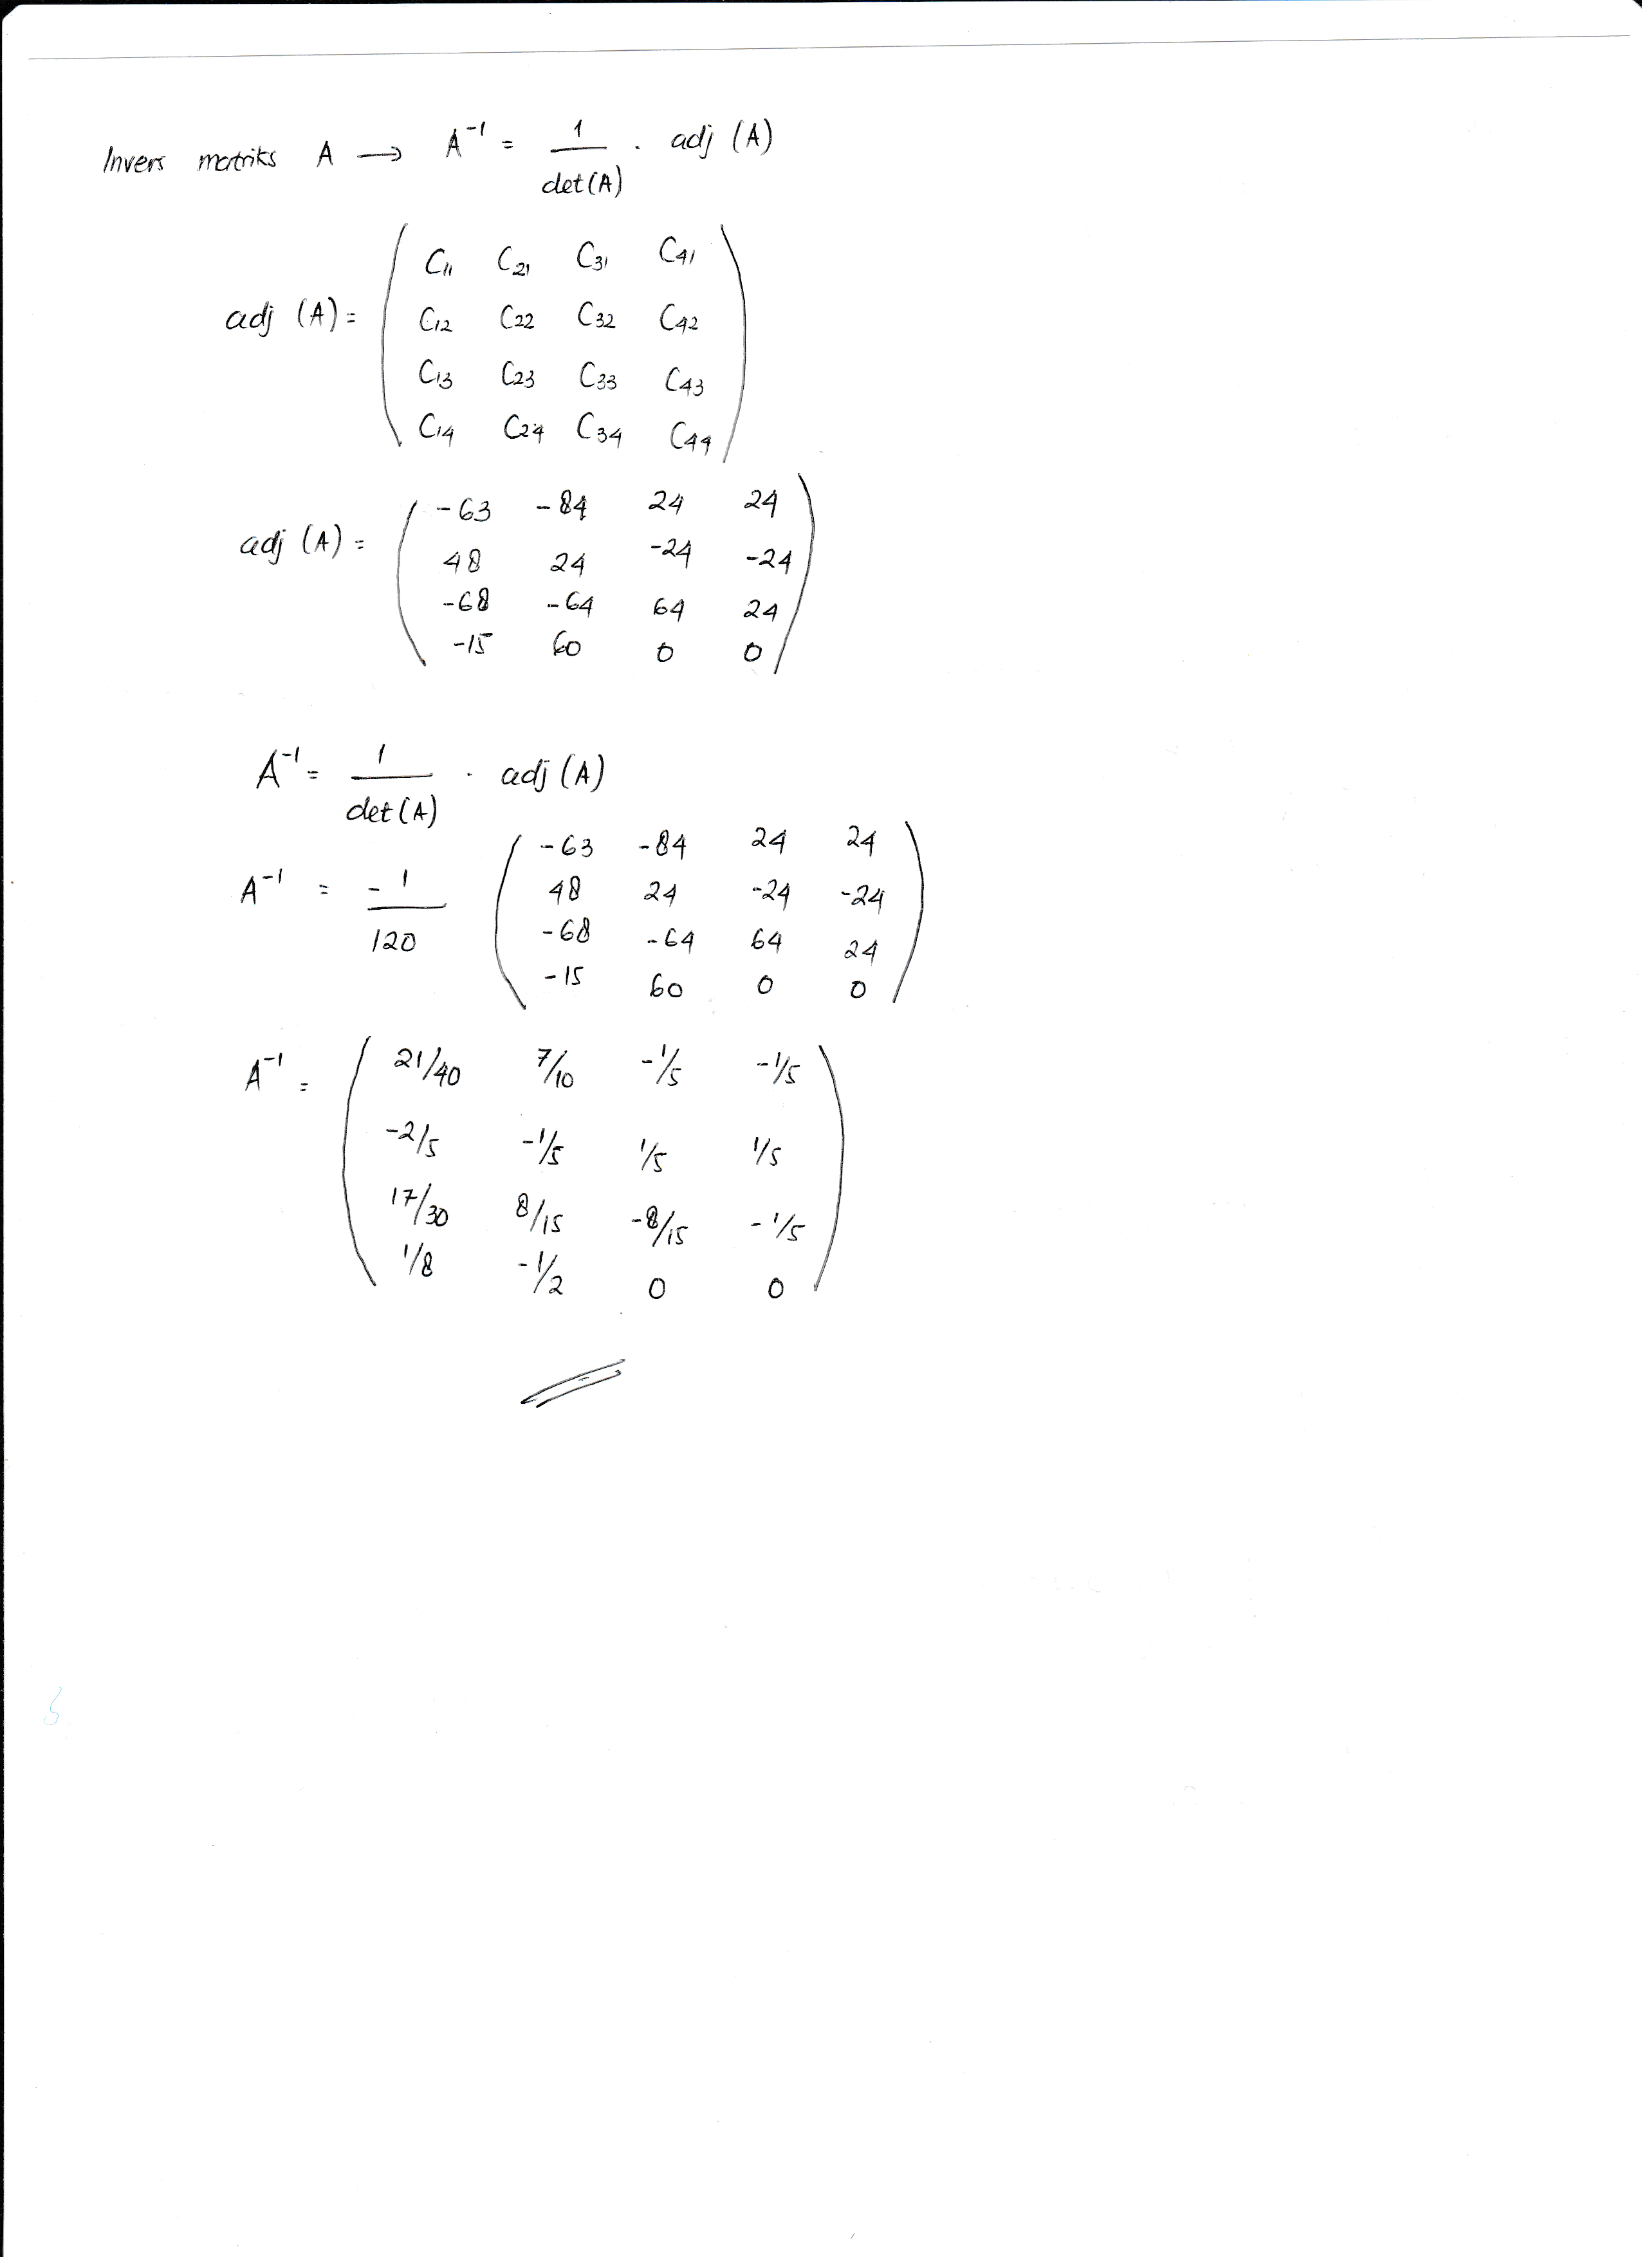 Invers matriks A → A⁻¹ = 1/det(A) . adj (A)
adj (A) =
C11 C21 C31 C41
C12 C22 C32 C42
C13 C23 C33 C43
C14 C24 C34 C44
adj (A) =
-63 -84 24 24
48 24 -24 -24
-68 -64 64 24
-15 60 0 0
A⁻¹ = 1/det(A) . adj (A)
A⁻¹ = -1/120
-63 -84 24 24
48 24 -24 -24
-68 -64 64 24
-15 60 0 0
A⁻¹ =
21/40 7/10 -1/5 -1/5
-2/5 -1/5 1/5 1/5
17/30 8/15 -8/15 -1/5
1/8 -1/2 0 0